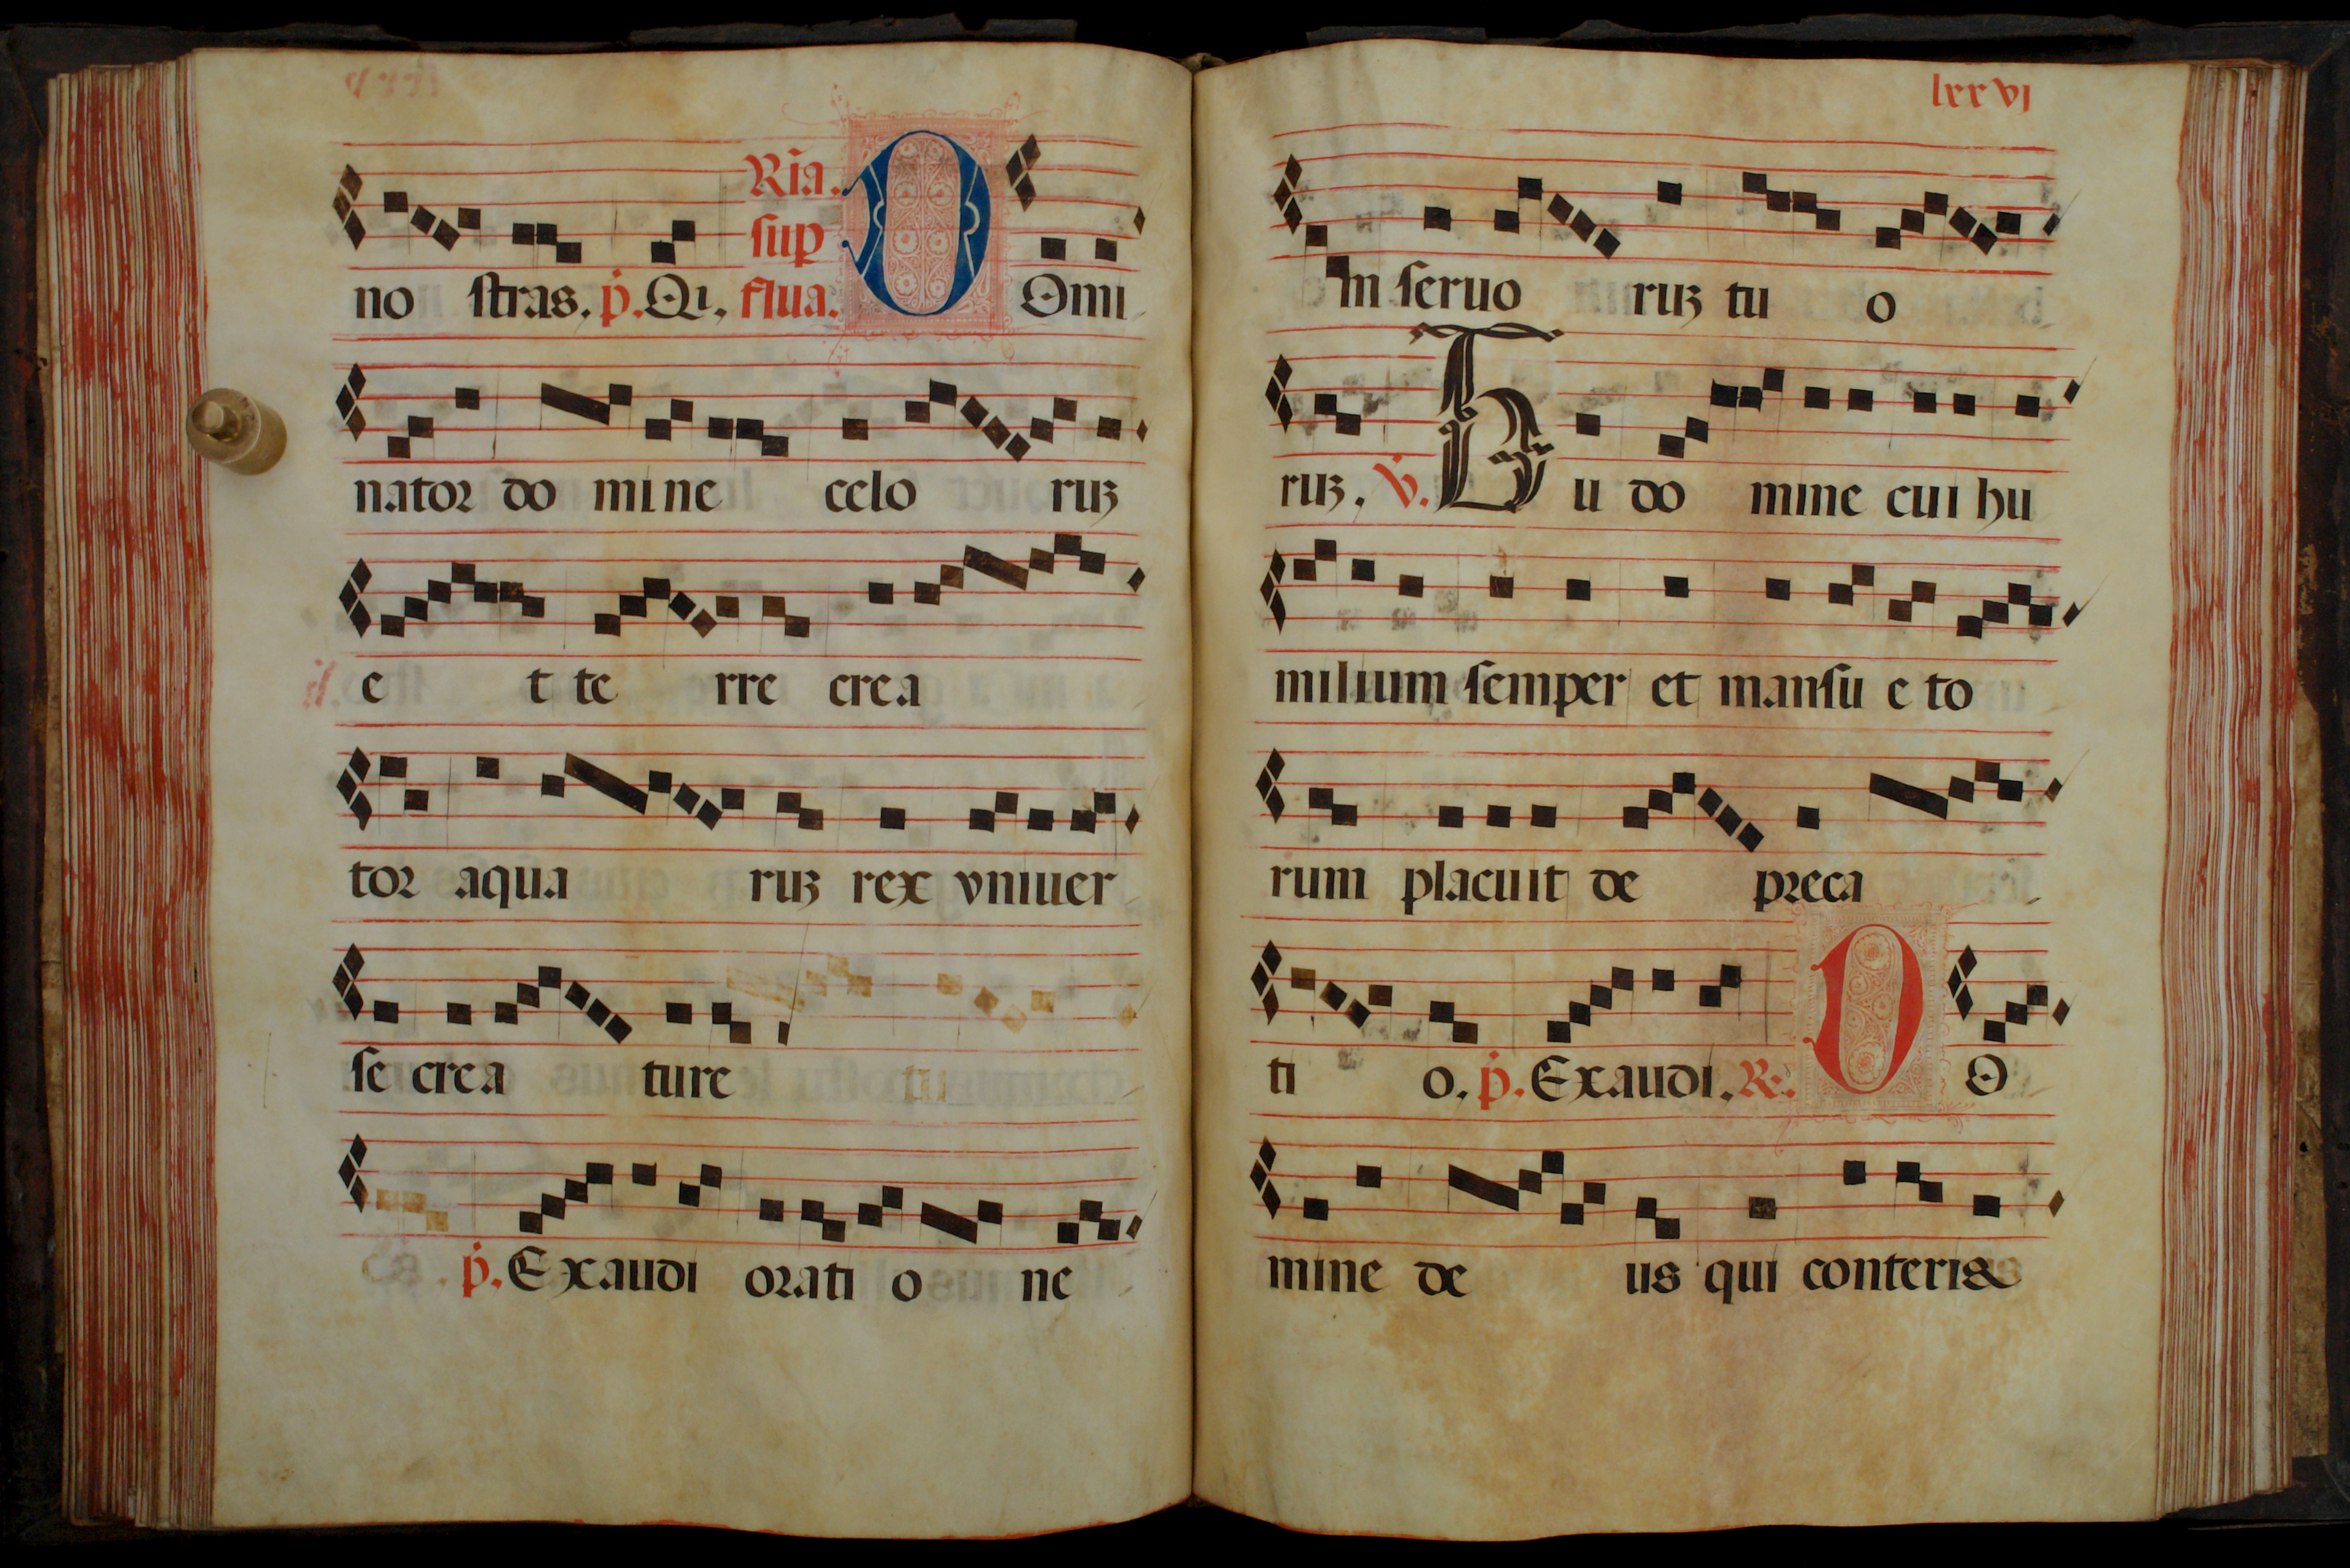 Ria.
sup
no stras. p. Qi, flua. D Omi
nator do mine celo ruꝫ
e t te rre crea
tor aqua ruꝫ rex vniuer
se crea ture tu
p. Exaudi orati o ne
lxxvj
m seruo ruꝫ tu o
ruꝫ. V. Tu do mine cui hu
milium semper et mansu e to
rum placuit de preca
ti o. p. Exaudi. R. D O
mine de us qui conteris